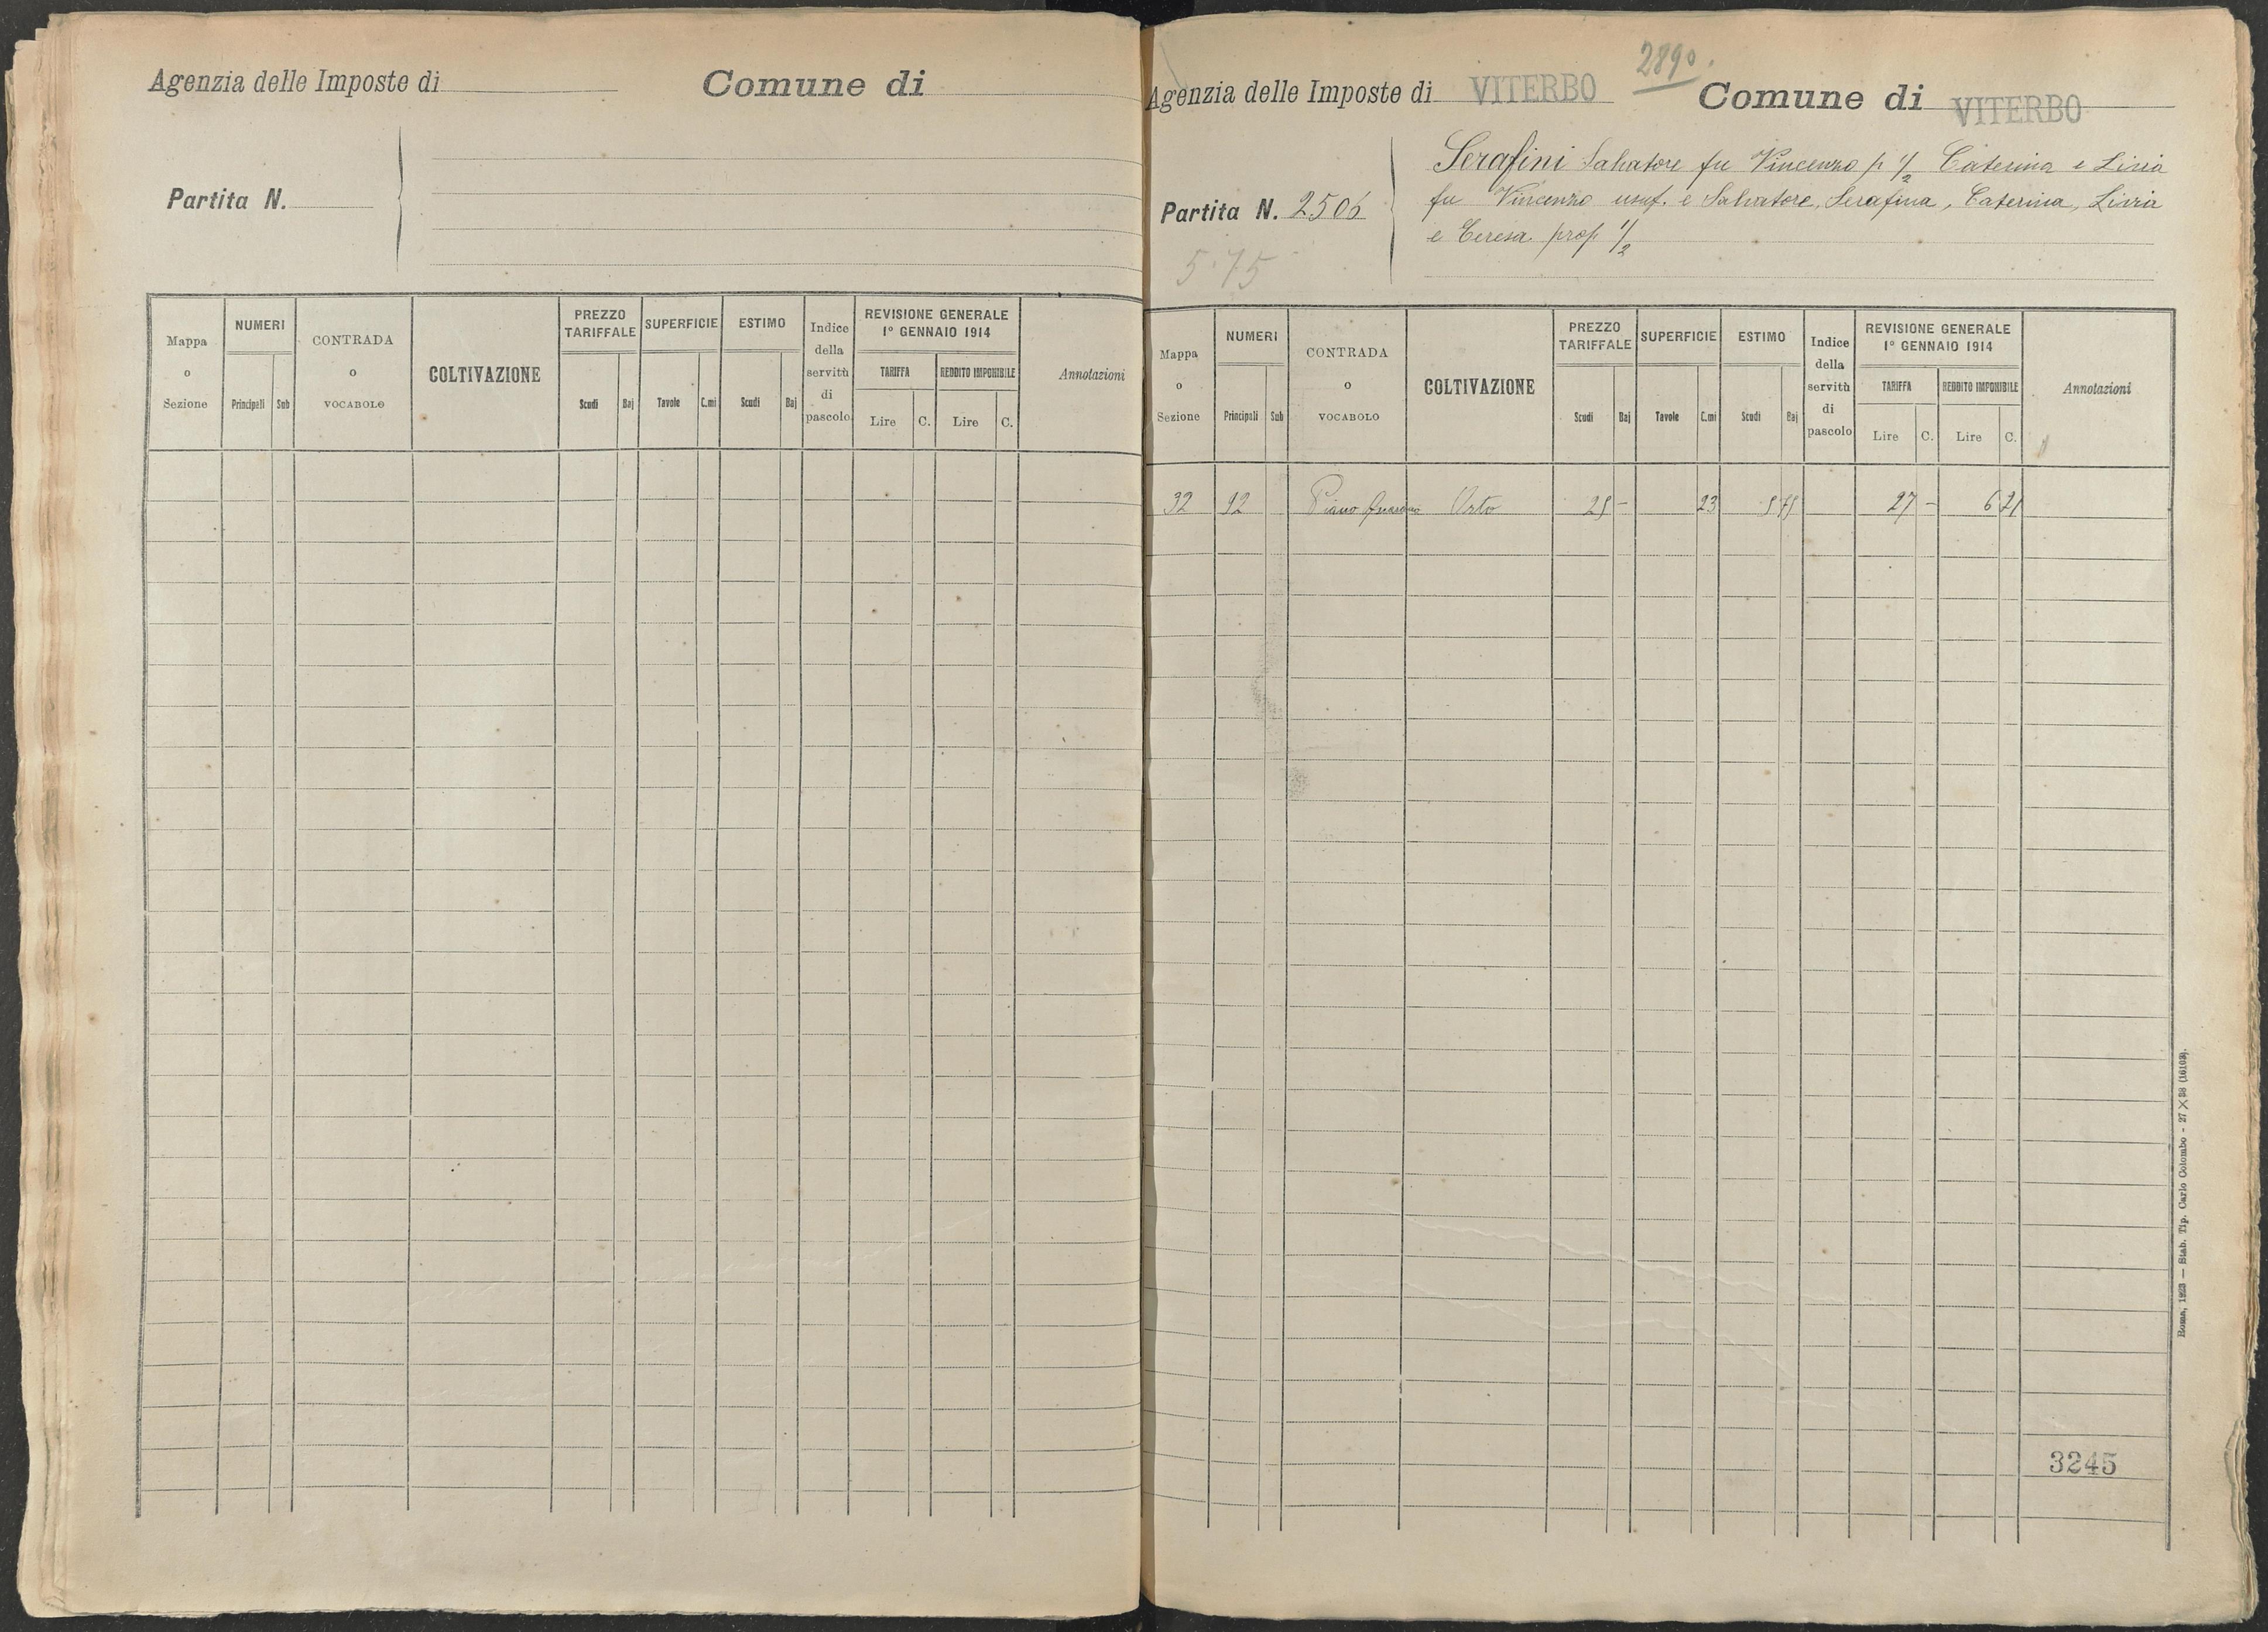 Agenzia delle Imposte di
Comune di
Partita N.
Mappa o Sezione
NUMERI
Principali Sub
CONTRADA o VOCABOLO
COLTIVAZIONE
PREZZO TARIFFALE
Scudi Baj
SUPERFICIE
Tavole C.mi
ESTIMO
Scudi Baj
Indice della servitù di pascolo
REVISIONE GENERALE
1º GENNAIO 1914
TARIFFA
Lire C.
REDDITO IMPONIBILE
Lire C.
Annotazioni
2890.
Agenzia delle Imposte di VITERBO
Comune di VITERBO
Partita N. 2506
5.75
Serafini Salvatore fu Vincenzo p 1/2 Caterina e Livia
fu Vincenzo usuf. e Salvatore, Serafina, Caterina, Livia
e Teresa prop 1/2
Mappa o Sezione
NUMERI
Principali Sub
CONTRADA o VOCABOLO
COLTIVAZIONE
PREZZO TARIFFALE
Scudi Baj
SUPERFICIE
Tavole C.mi
ESTIMO
Scudi Baj
Indice della servitù di pascolo
REVISIONE GENERALE
1º GENNAIO 1914
TARIFFA
Lire C.
REDDITO IMPONIBILE
Lire C.
Annotazioni
32 92 Piano Orto 25 - 23 5 75 27 - 6 21
3245
Roma, 1923 — Stab. Tip. Carlo Colombo - 27 X 38 (16103).